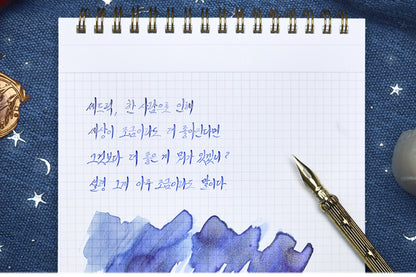 세드릭, 한 사람으로 인해
세상이 조금이라도 더 좋아진다면
그것보다 더 좋은 게 뭐가 있겠니?
설령 그게 아주 조금이라도 말이다